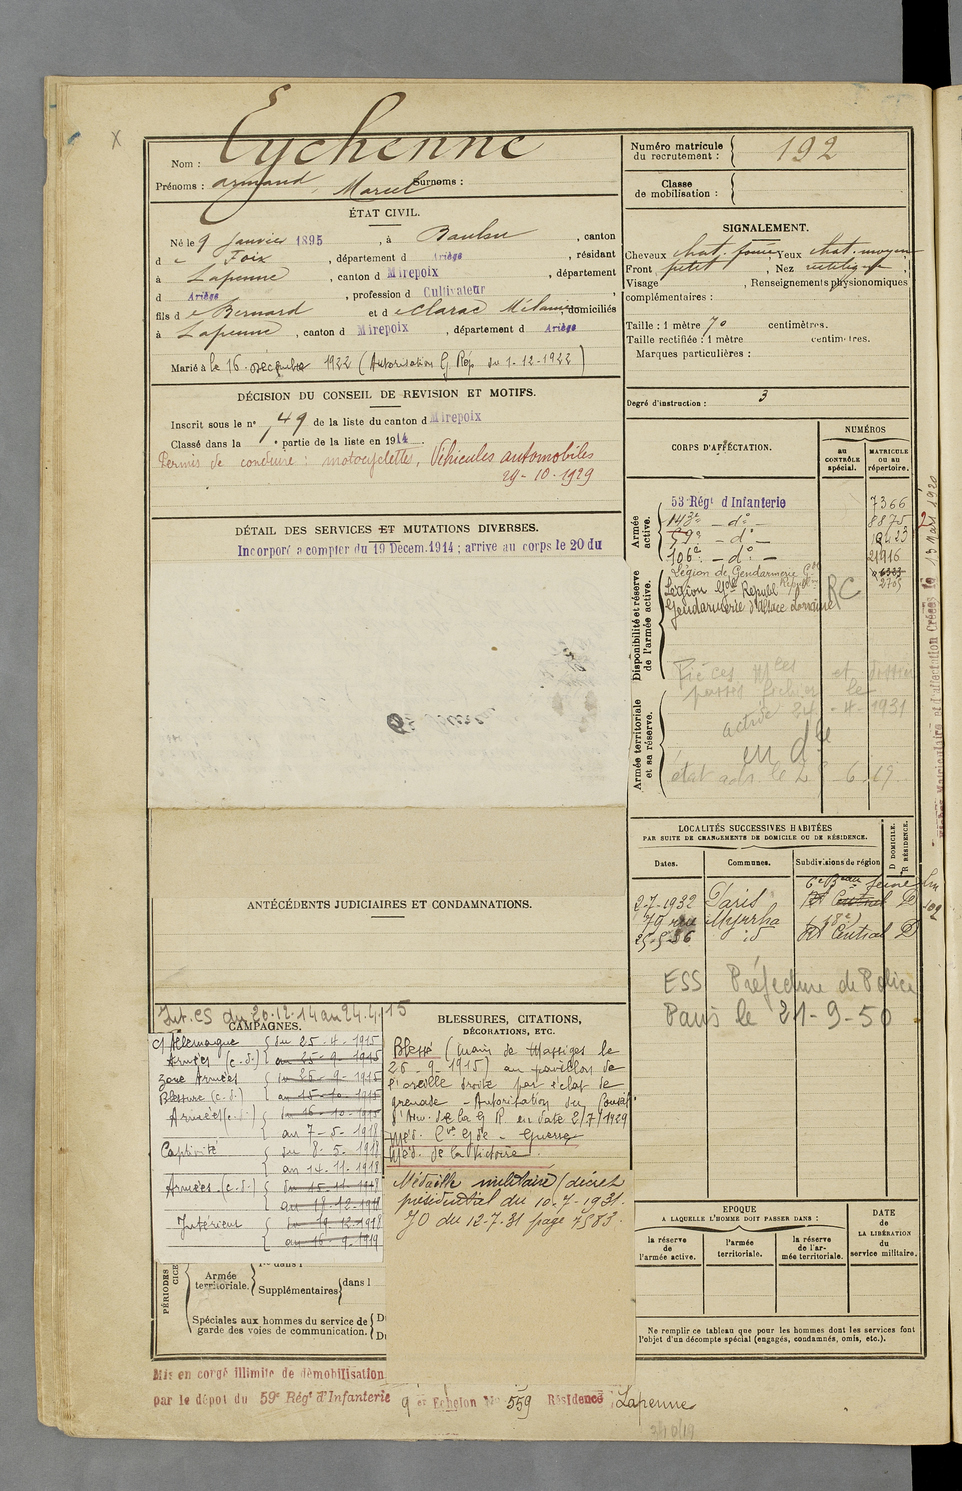 Eychenne
Nom :
Prénoms : Armand, Marcel Surnoms :
ÉTAT CIVIL.
Né le 9 Janvier 1895, à Baulou, canton
de Foix, département d Ariège, résidant
à Lapenne, canton d Mirepoix, département
d Ariège, profession d Cultivateur,
fils de Bernard et de Clarac Mélanie, domiciliés
à Lapenne, canton d Mirepoix, département d Ariège
Marié à le 16 décembre 1922 (Autorisation G. Rép. du 1-12-1922)
DÉCISION DU CONSEIL DE REVISION ET MOTIFS.
Inscrit sous le n° 49 de la liste du canton d Mirepoix
Classé dans la 1e partie de la liste en 1914.
Permis de conduire : motocyclettes, Véhicules automobiles
29-10-1929
DÉTAIL DES SERVICES ET MUTATIONS DIVERSES.
Incorporé a compter du 19 Decem. 1914 ; arrive au corps le 20 du
ANTÉCÉDENTS JUDICIAIRES ET CONDAMNATIONS.
Int. CS du 20.12.14 au 24.4.15
CAMPAGNES.
Ct Allemagne { du 25-4-1915
Armées (c.d.) { au 25-9-1915
Zone Armées { du 26-9-1915
Blessure (c.d.) { au 15-10-1915
Armées (c.d.) { du 16-10-1915
{ au 7-5-1918
Captivité { du 8-5-1918
{ au 14.11.1918
Armées (c.d.) { du 15-11-1918
{ au 18-12-1918
Intérieur { du 19.12.1918
{ au 16-9-1919
PÉRIODES
Armée territoriale.
Supplémentaires
dans l
Spéciales aux hommes du service de
garde des voies de communication.
BLESSURES, CITATIONS,
DÉCORATIONS, ETC.
Blessé (main de Massiges le
26-9-1915) au pavillon de
l'oreille droite par éclat de
grenade - Autorisation du Conseil
d'Adm. de la G R. en date 2/7/1929
Méd. Cve Gde - Guerre
Méd. de la Victoire.
Médaille militaire (décret
présidentiel du 10-7-1931.
JO du 12-7-31 page 7583.
Mis en congé illimité de démobilisation
par le dépôt du 59e Régt d'Infanterie 9 er Echelon No 559 Résidence : Lapenne
Numéro matricule
du recrutement : 192
Classe
de mobilisation :
SIGNALEMENT.
Cheveux chat. foncé, Yeux chat. moyens
Front petit, Nez rectiligne,
Visage , Renseignements physionomiques
complémentaires :
Taille : 1 mètre 70 centimètres.
Taille rectifiée : 1 mètre centimètres.
Marques particulières :
Degré d'instruction : 3
CORPS D'AFFECTATION.
NUMÉROS
au
CONTRÔLE
spécial.
MATRICULE
ou au
répertoire.
Armée
active.
53 Régt d Infanterie 7366
143e - do - 8875
59e - do -
106e - do - 21916
Légion de Gendarmerie Gde Républ.
Légion Gde Républ. 2705
Gendarmerie d'Alsace Lorraine RC
Disponibilité et réserve
de l'armée active.
Armée territoriale
et sa réserve.
LOCALITÉS SUCCESSIVES HABITÉES
PAR SUITE DE CHANGEMENTS DE DOMICILE OU DE RÉSIDENCE.
Dates.
Communes.
Subdivisions de région
D DOMICILE.
R RÉSIDENCE.
2-7-1932 Paris Central D
79 rue Myrrha (18e)
25-5-36 id Central D
ESS Préfecture de Police
Paris le 21-9-50
EPOQUE
A LAQUELLE L'HOMME DOIT PASSER DANS :
DATE
de
LA LIBÉRATION
du
service militaire.
la réserve
de
l'armée active.
l'armée
territoriale.
la réserve
de l'ar-
mée territoriale.
Ne remplir ce tableau que pour les hommes dont les services font
l'objet d'un décompte spécial (engagés, condamnés, omis, etc.).